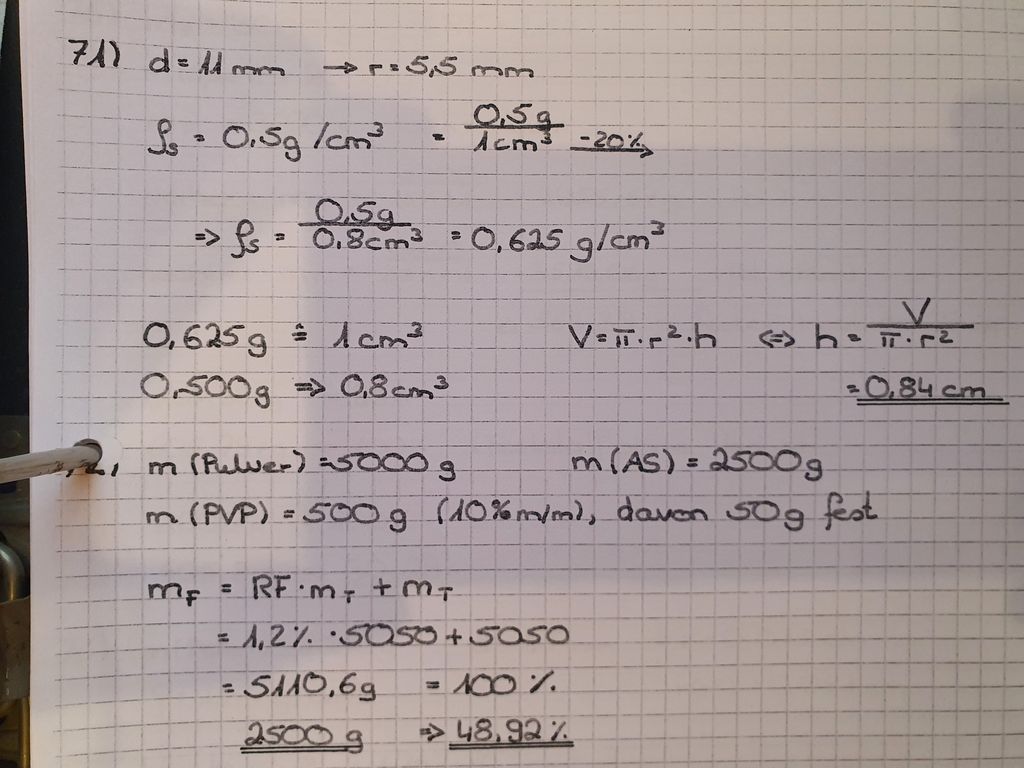 71) d = 11 mm → r = 5,5 mm
ρs = 0,5g /cm³ = 0,5g / 1cm³ -20% →
⇒ ρs = 0,5g / 0,8cm³ = 0,625 g/cm³
0,625g ≙ 1cm³ V = π·r²·h ⇔ h = V / π·r²
0,500g ⇒ 0,8cm³ = 0,84 cm
m (Pulver) = 5000 g m (AS) = 2500g
m (PVP) = 500 g (10% m/m), davon 50g fest
mF = RF·mT + mT
= 1,2% · 5050 + 5050
= 5110,6g = 100 %
2500 g ⇒ 48,92%